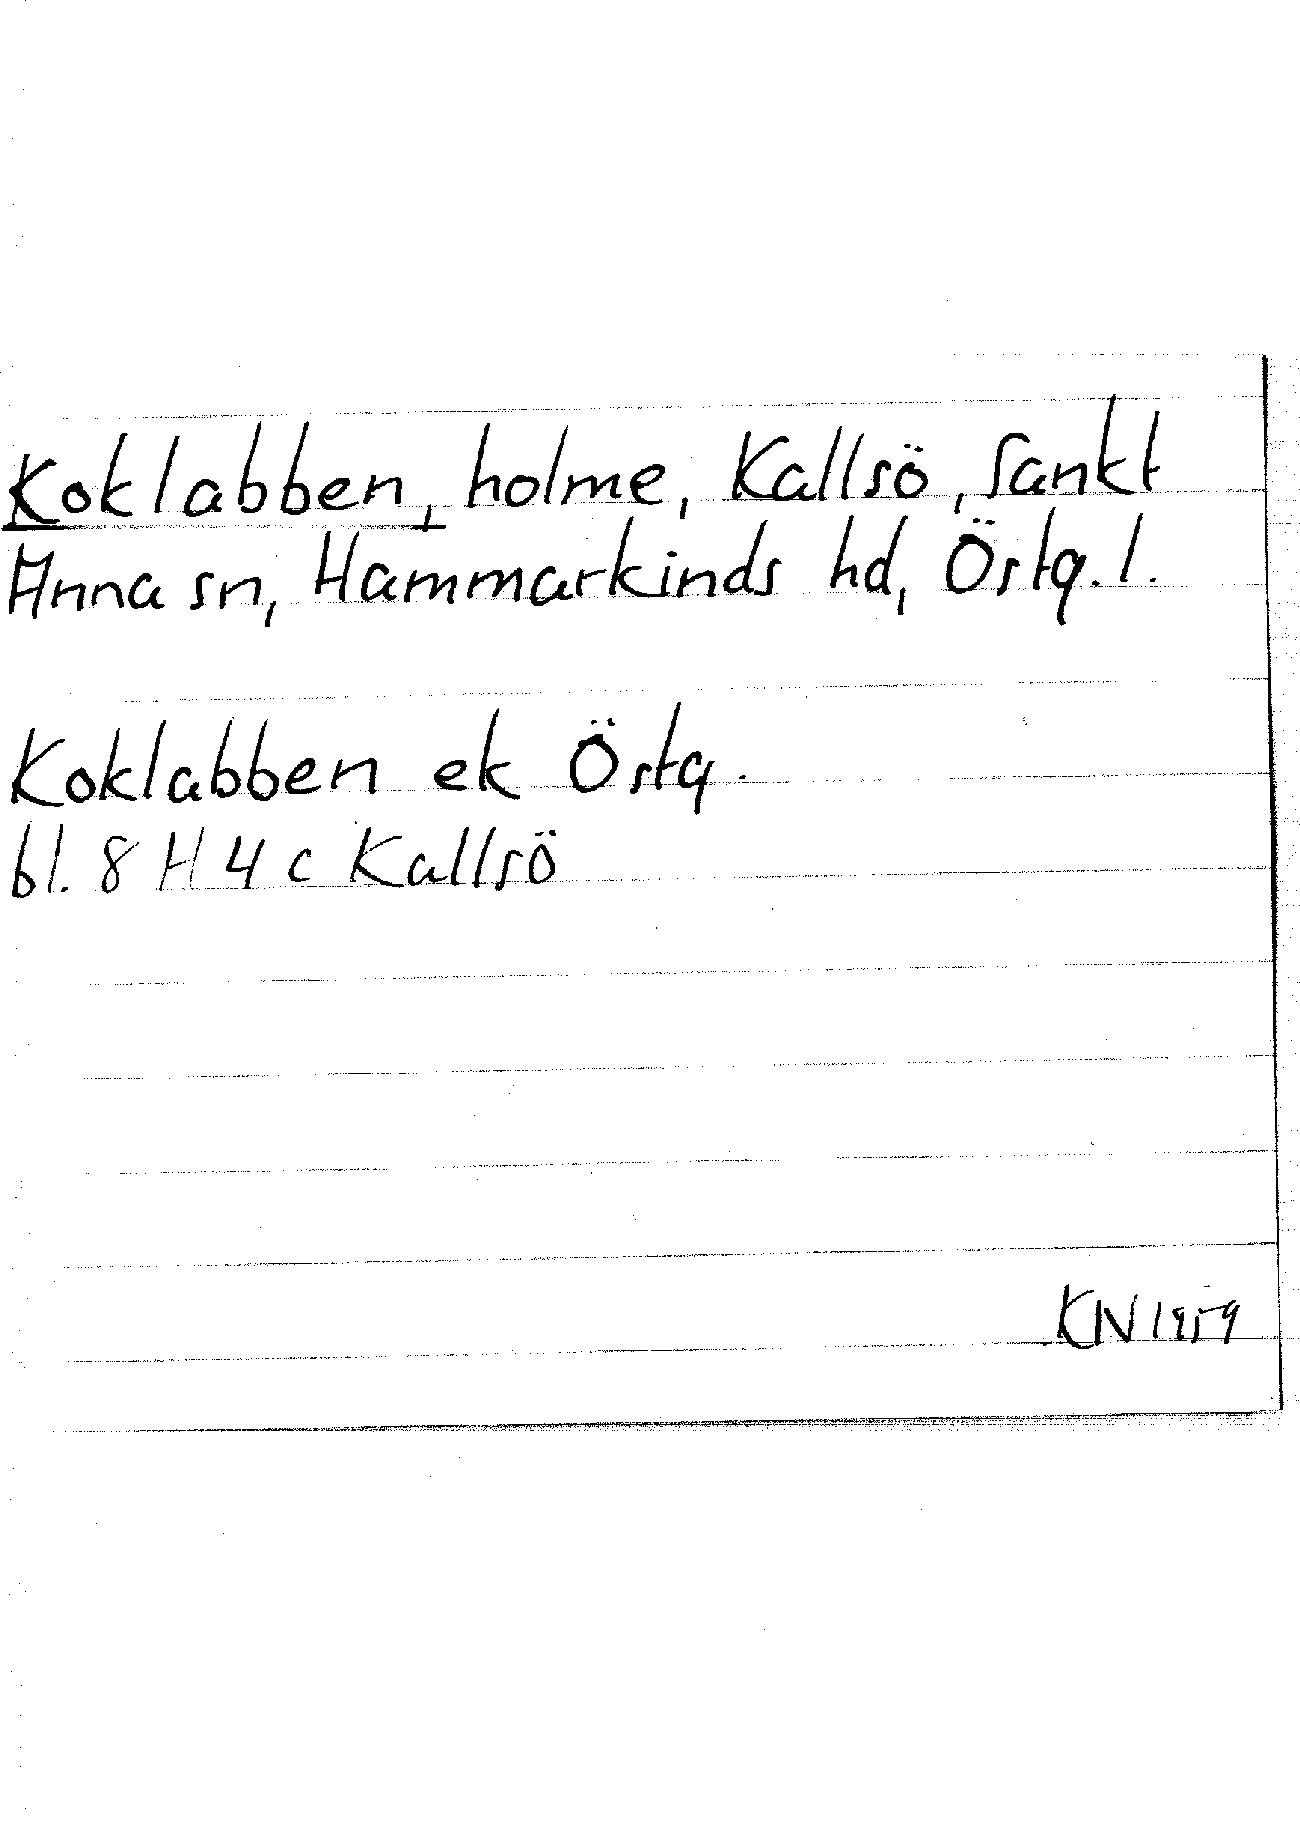 Koklabben, holme, Kallsö, Sankt
Anna sn, Hammarkinds hd, Östg. l.
Koklabben ek Östg.
bl. 8 H 4 c Kallsö
KN 1959